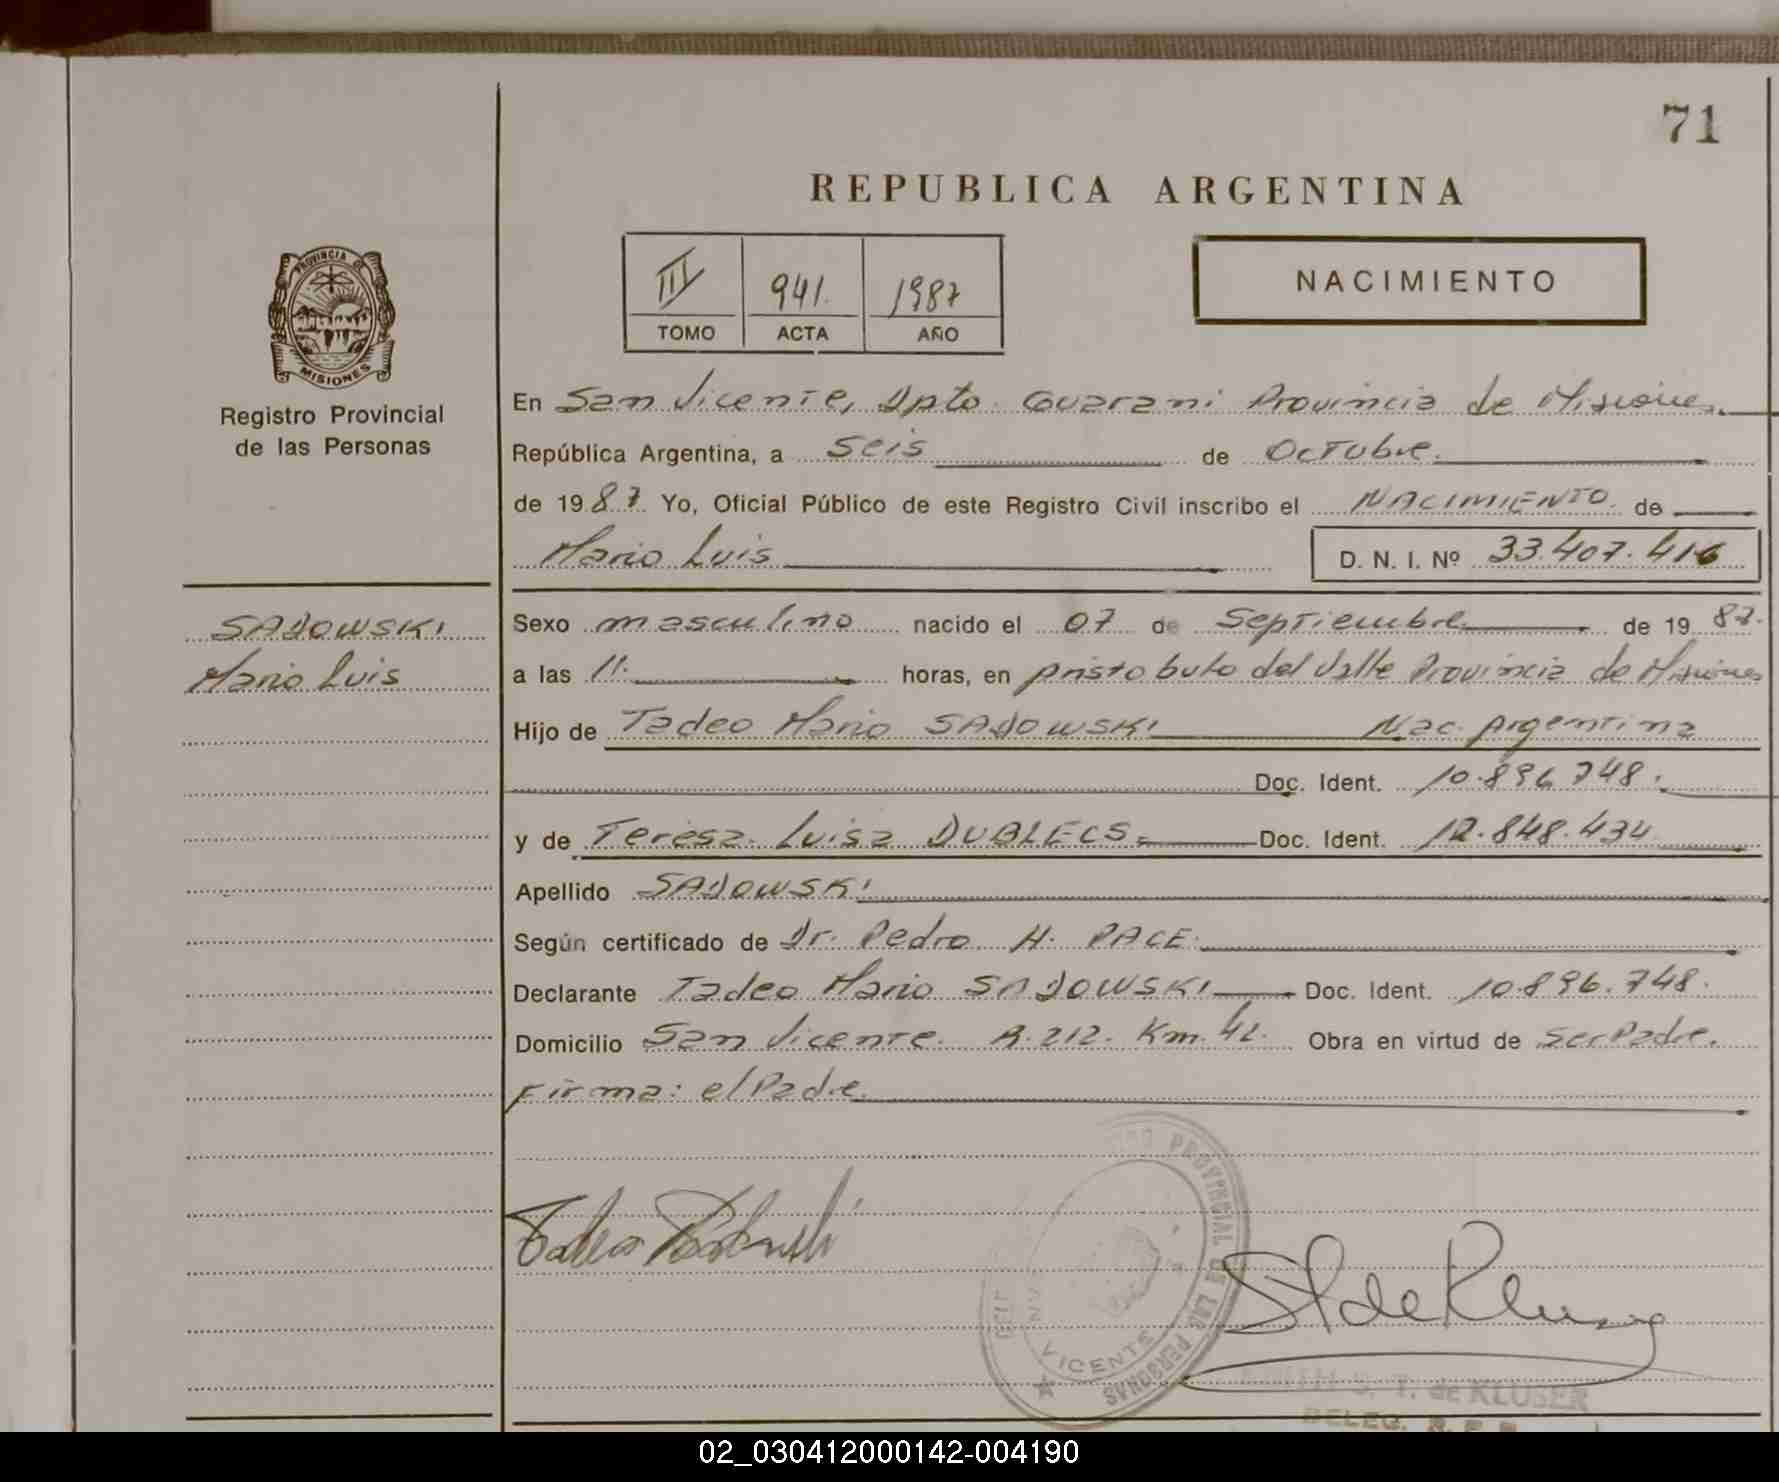 71
REPUBLICA ARGENTINA
PROVINCIA DE
MISIONES
Registro Provincial
de las Personas
III 941. 1987
TOMO ACTA AÑO
NACIMIENTO
En San Vicente, Dpto. Guarani Provincia de Misiones.
República Argentina, a seis de Octubre.
de 1987. Yo, Oficial Público de este Registro Civil inscribo el NACIMIENTO. de
Mario Luis D. N. I. Nº 33.407.416
SADOWSKI
Mario Luis
Sexo masculino nacido el 07 de Septiembre de 1987.
a las 11. horas, en Aristobulo del Valle Provincia de Misiones
Hijo de Tadeo Mario SADOWSKI Nac. Argentina
Doc. Ident. 10.896.748.
y de Teresa Luisa DUBLECS. Doc. Ident. 12.848.434
Apellido SADOWSKI
Según certificado de Dr. Pedro H. PACE.
Declarante Tadeo Mario SADOWSKI Doc. Ident. 10.896.748.
Domicilio San Vicente. R. 212. Km. 42. Obra en virtud de ser Padre.
Firma: el Padre.
PROVINCIAL DE LAS PERSONAS
VICENTE
S. T. de KLUSER
DELEG.
02_030412000142-004190